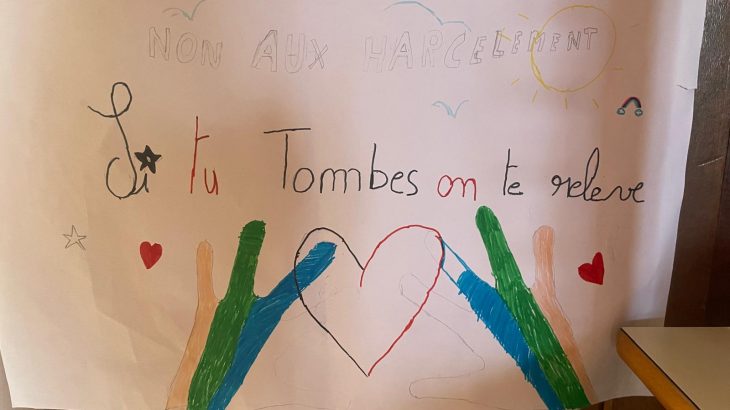 NON AUX HARCELEMENT
Si tu Tombes on te relève